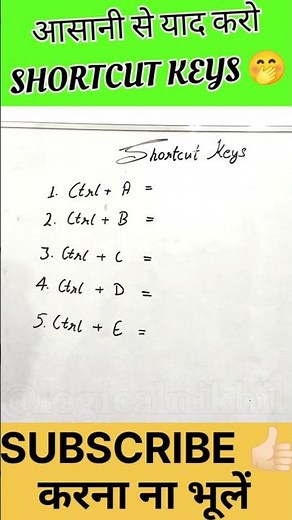 आसानी से याद करो
SHORTCUT KEYS 🤭
Shortcut Keys
1. Ctrl + A =
2. Ctrl + B =
3. Ctrl + C =
4. Ctrl + D =
5. Ctrl + E =
SUBSCRIBE 👍🏻
करना ना भूलें